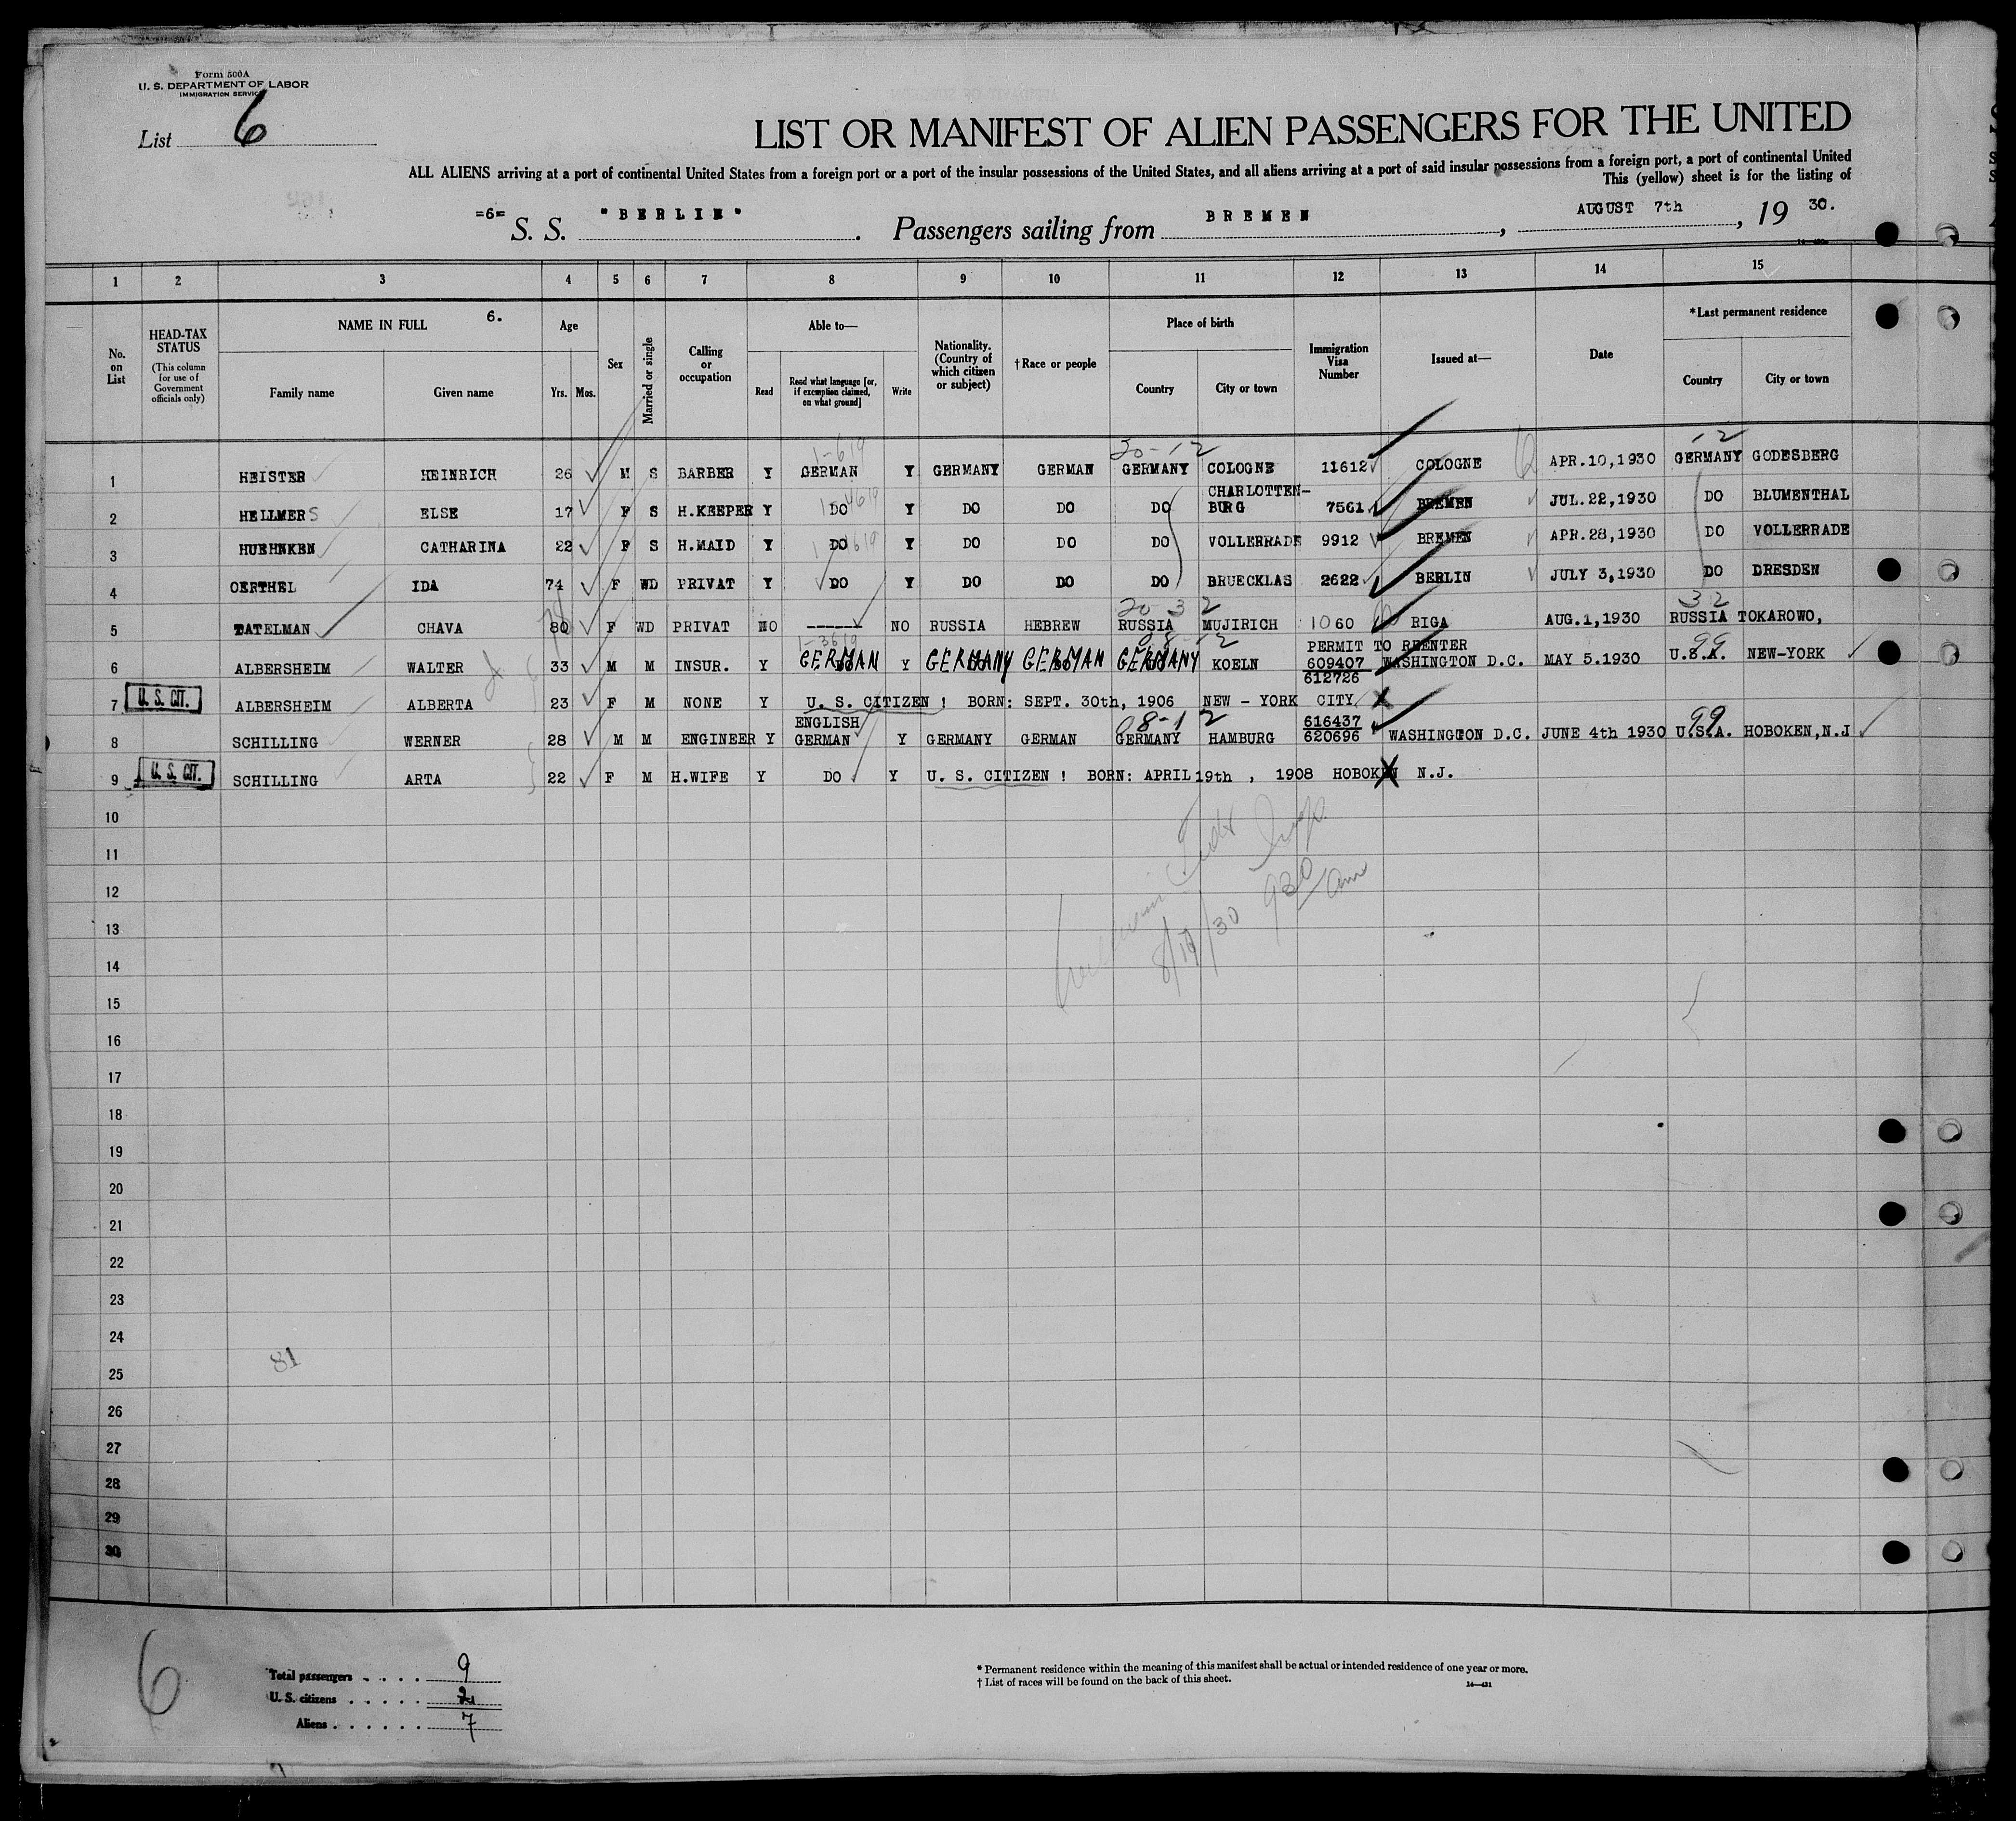 Form 500A
U. S. DEPARTMENT OF LABOR
IMMIGRATION SERVICE
List 6
LIST OR MANIFEST OF ALIEN PASSENGERS FOR THE UNITED
ALL ALIENS arriving at a port of continental United States from a foreign port or a port of the insular possessions of the United States, and all aliens arriving at a port of said insular possessions from a foreign port, a port of continental United
This (yellow) sheet is for the listing of
=6= S. S. "BERLIN". Passengers sailing from BREMEN, AUGUST 7th, 19 30.
1 2 3 4 5 6 7 8 9 10 11 12 13 14 15
No. on List
HEAD-TAX STATUS
(This column for use of Government officials only)
NAME IN FULL 6.
Family name Given name
Age
Yrs. Mos.
Sex
Married or single
Calling or occupation
Able to—
Read
Read what language [or, if exemption claimed, on what ground]
Write
Nationality. (Country of which citizen or subject)
† Race or people
Place of birth
Country City or town
Immigration Visa Number
Issued at—
Date
*Last permanent residence
Country City or town
30-12 12
1 HEISTER HEINRICH 26 M S BARBER Y GERMAN Y GERMANY GERMAN GERMANY COLOGNE 11612 COLOGNE APR.10,1930 GERMANY GODESBERG
2 HELLMERS ELSE 17 F S H.KEEPER Y DO Y DO DO DO CHARLOTTEN-BURG 7561 BREMEN JUL.22,1930 DO BLUMENTHAL
3 HUEHNKEN CATHARINA 22 F S H.MAID Y DO Y DO DO DO VOLLERRADE 9912 BREMEN APR.28,1930 DO VOLLERRADE
4 OERTHEL IDA 74 F WD PRIVAT Y DO Y DO DO DO BRUECKLAS 2622 BERLIN JULY 3,1930 DO DRESDEN
5 TATELMAN CHAVA 80 F WD PRIVAT NO ------ NO RUSSIA HEBREW RUSSIA MUJIRICH 1060 RIGA AUG.1,1930 RUSSIA TOKAROWO,
PERMIT TO REENTER
6 ALBERSHEIM WALTER 33 M M INSUR. Y GERMAN Y GERMANY GERMAN GERMANY KOELN 609407 612726 WASHINGTON D.C. MAY 5.1930 U.S.A. 99 NEW-YORK
7 U. S. CIT. ALBERSHEIM ALBERTA 23 F M NONE Y U. S. CITIZEN ! BORN: SEPT. 30th, 1906 NEW - YORK CITY
8 SCHILLING WERNER 28 M M ENGINEER Y ENGLISH GERMAN Y GERMANY GERMAN GERMANY 08-12 HAMBURG 616437 620696 WASHINGTON D.C. JUNE 4th 1930 U.S.A. 99 HOBOKEN,N.J
9 U. S. CIT. SCHILLING ARTA 22 F M H.WIFE Y DO Y U. S. CITIZEN ! BORN: APRIL 19th , 1908 HOBOKEN N.J.
10
11
12
13
14
15
16
17
18
19
20
21
22
23
24
25
26
27
28
29
30
930 am
81
6
Total passengers . . . . 9
U. S. citizens . . . . . 2
Aliens . . . . . . 7
* Permanent residence within the meaning of this manifest shall be actual or intended residence of one year or more.
† List of races will be found on the back of this sheet.
14—431